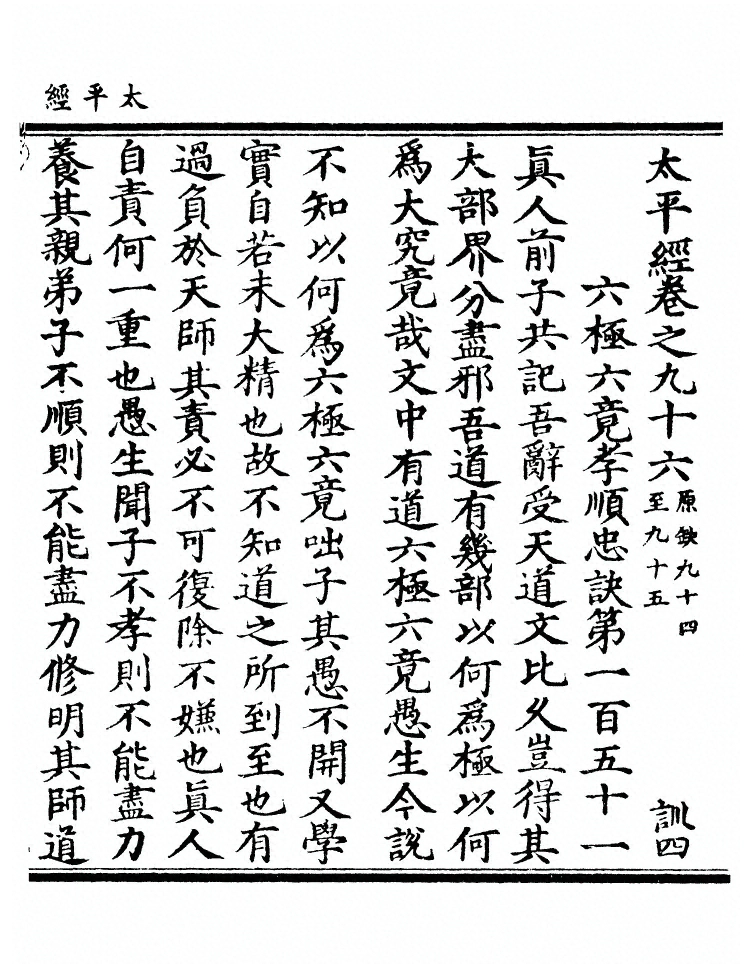 太平經
太平經卷之九十六
原鈌九十四
至九十五
訓四
六極六竟孝順忠訣第一百五十一
眞人前子共記吾辭受天道文比久豈得其
大部界分盡邪吾道有幾部以何爲極以何
爲大究竟哉文中有道六極六竟愚生今說
不知以何爲六極六竟咄子其愚不開又學
實自若未大精也故不知道之所到至也有
過負於天師其責必不可復除不嫌也眞人
自責何一重也愚生聞子不孝則不能盡力
養其親弟子不順則不能盡力修明其師道